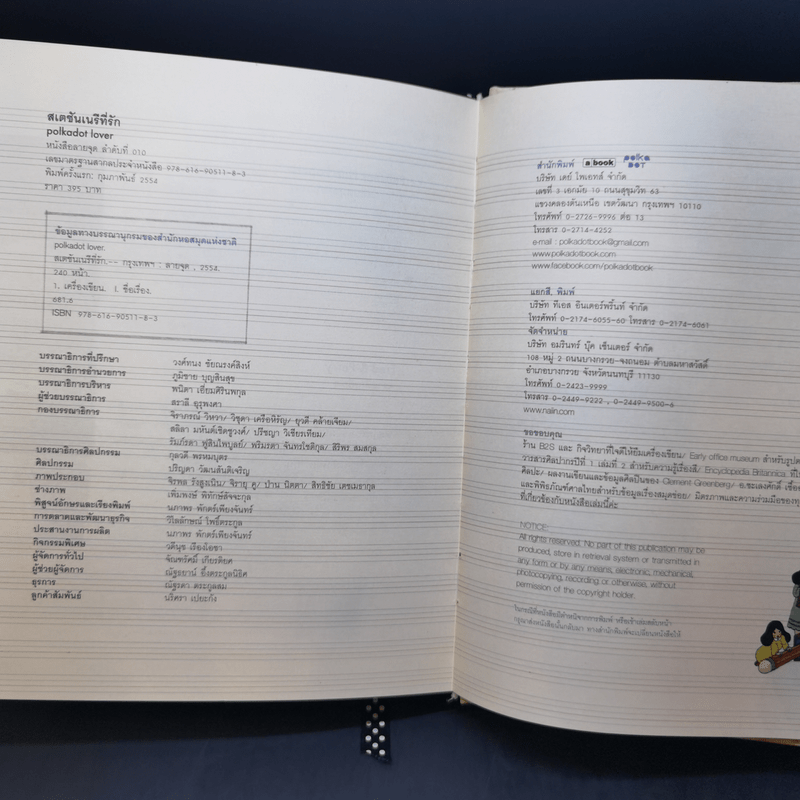 สเตชันเนรีที่รัก
polkadot lover
หนังสือลายจุด ลำดับที่ 010
เลขมาตรฐานสากลประจำหนังสือ 978-616-90511-8-3
พิมพ์ครั้งแรก: กุมภาพันธ์ 2554
ราคา 395 บาท
ข้อมูลทางบรรณานุกรมของสำนักหอสมุดแห่งชาติ
polkadot lover.
สเตชันเนรีที่รัก.-- กรุงเทพฯ : ลายจุด , 2554.
240 หน้า.
1. เครื่องเขียน. I. ชื่อเรื่อง.
681.6
ISBN 978-616-90511-8-3
บรรณาธิการที่ปรึกษา วงศ์ทนง ชัยณรงค์สิงห์
บรรณาธิการอำนวยการ ภูมิชาย บุญสินสุข
บรรณาธิการบริหาร พนิดา เอี่ยมศิรินพกุล
ผู้ช่วยบรรณาธิการ สราลี อุรุพงศา
กองบรรณาธิการ จิราภรณ์ วิหวา/ วิชุดา เครือหิรัญ/ ยุวดี คล้ายเจียม/
สลิลา มหันต์เชิดชูวงศ์/ ปรีชญา วิเชียรเทียม/
รัมภ์รดา ฟูสินไพบูลย์/ พริมรตา จันทรโชติกุล/ สิริพร สมสกุล
บรรณาธิการศิลปกรรม กุลวดี พรหมบุตร
ศิลปกรรม ปริญดา วัฒนสันติเจริญ
ภาพประกอบ จิรพล รังสูงเนิน/ จิรายุ คู/ ป่าน นิตตา/ สิทธิชัย เตชมธากุล
ช่างภาพ เพิ่มพงษ์ พิทักษ์สัจจะกุล
พิสูจน์อักษรและเรียงพิมพ์ นภาพร พักตร์เพียงจันทร์
การตลาดและพัฒนาธุรกิจ วิไลลักษณ์ โพธิ์ตระกูล
ประสานงานการผลิต นภาพร พักตร์เพียงจันทร์
กิจกรรมพิเศษ วดีนุช เรืองโอชา
ผู้จัดการทั่วไป จันทร์ศมิ์ เกียรติยศ
ผู้ช่วยผู้จัดการ ณัฐธยาน์ อึ้งตระกูลนิธิศ
ธุรการ ณัฐรดา ตระกูลสม
ลูกค้าสัมพันธ์ นริศรา เปยะกัง
สำนักพิมพ์ a book polka DOT
บริษัท เดย์ โพเอทส์ จำกัด
เลขที่ 3 เอกมัย 10 ถนนสุขุมวิท 63
แขวงคลองตันเหนือ เขตวัฒนา กรุงเทพฯ 10110
โทรศัพท์ 0-2726-9996 ต่อ 13
โทรสาร 0-2714-4252
e-mail : polkadotbook@gmail.com
www.polkadotbook.com
www.facebook.com/polkadotbook
แยกสี, พิมพ์
บริษัท ทีเอส อินเตอร์พริ้นท์ จำกัด
โทรศัพท์ 0-2174-6055-60 โทรสาร 0-2174-6061
จัดจำหน่าย
บริษัท อมรินทร์ บุ๊ค เซ็นเตอร์ จำกัด
108 หมู่ 2 ถนนบางกรวย-จงถนอม ตำบลมหาสวัสดิ์
อำเภอบางกรวย จังหวัดนนทบุรี 11130
โทรศัพท์ 0-2423-9999
โทรสาร 0-2449-9222 , 0-2449-9500-6
www.naiin.com
ขอขอบคุณ
ร้าน B2S และ กิจวิทยาที่ใจดีให้ยืมเครื่องเขียน/ Early office museum สำหรับรูป
วารสารศิลปากรปีที่ 1 เล่มที่ 2 สำหรับความรู้เรื่องสี/ Encyclopedia Britannica ที่
ศิลปะ/ ผลงานเขียนและข้อมูลศิลปินของ Clement Greenberg/ อ.ชะเลงศักดิ์ เชื้อ
และพิพิธภัณฑ์ศาลไทยสำหรับข้อมูลเรื่องสมุดข่อย/ มิตรภาพและความร่วมมือของทุ
ที่เกี่ยวข้องกับหนังสือเล่มนี้ค่ะ
NOTICE:
All rights reserved. No part of this publication may be
produced, store in retrieval system or transmitted in
any form or by any means, electronic, mechanical,
photocopying, recording or otherwise, without
permission of the copyright holder.
ในกรณีที่หนังสือมีตำหนิจากการพิมพ์ หรือเข้าเล่มสลับหน้า
กรุณาส่งหนังสือนั้นกลับมา ทางสำนักพิมพ์จะเปลี่ยนหนังสือให้